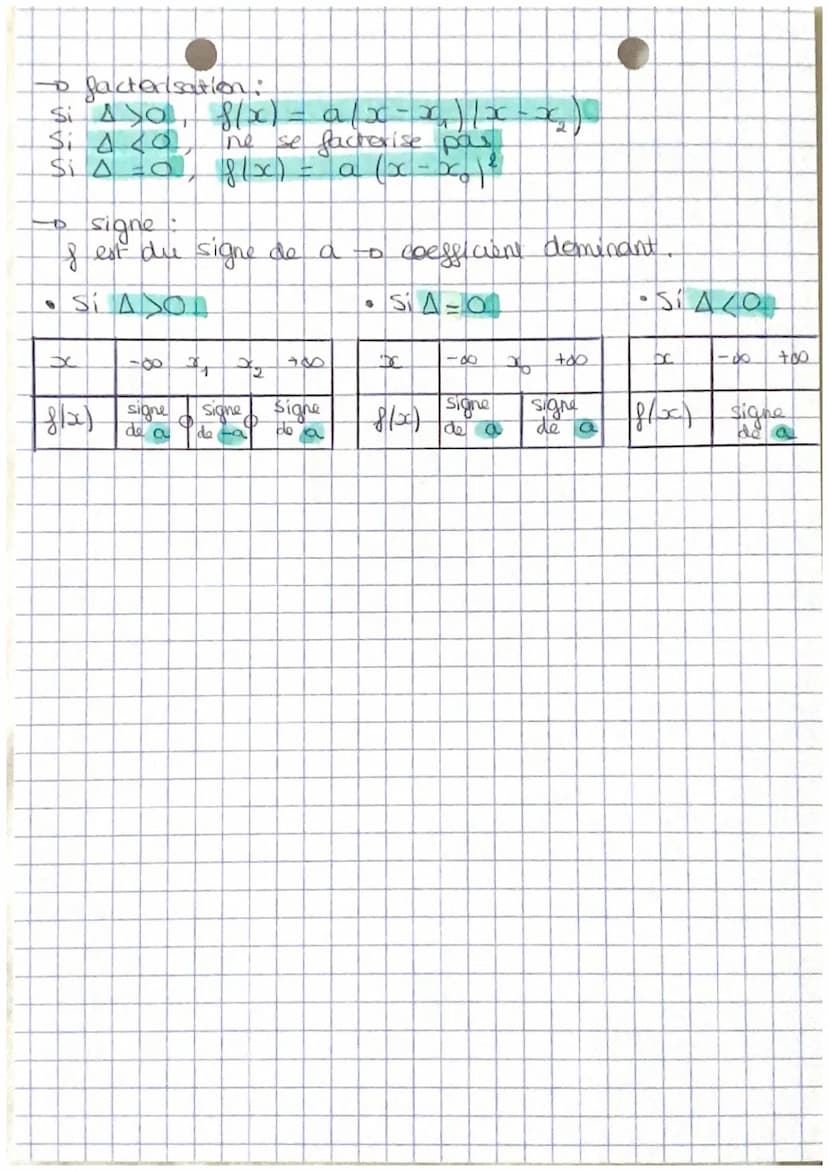 → factorisation :
Si Δ > 0, f(x) = a(x - x₁)(x - x₂)
Si Δ < 0, ne se factorise pas
Si Δ = 0, f(x) = a (x - x₀)²
→ signe :
f est du signe de a → coefficient dominant.
• Si Δ > 0
x -∞ x₁ x₂ +∞
f(x) signe de a 0 signe de -a 0 signe de a
• Si Δ = 0
x -∞ x₀ +∞
f(x) signe de a signe de a
• Si Δ < 0
x -∞ +∞
f(x) signe de a